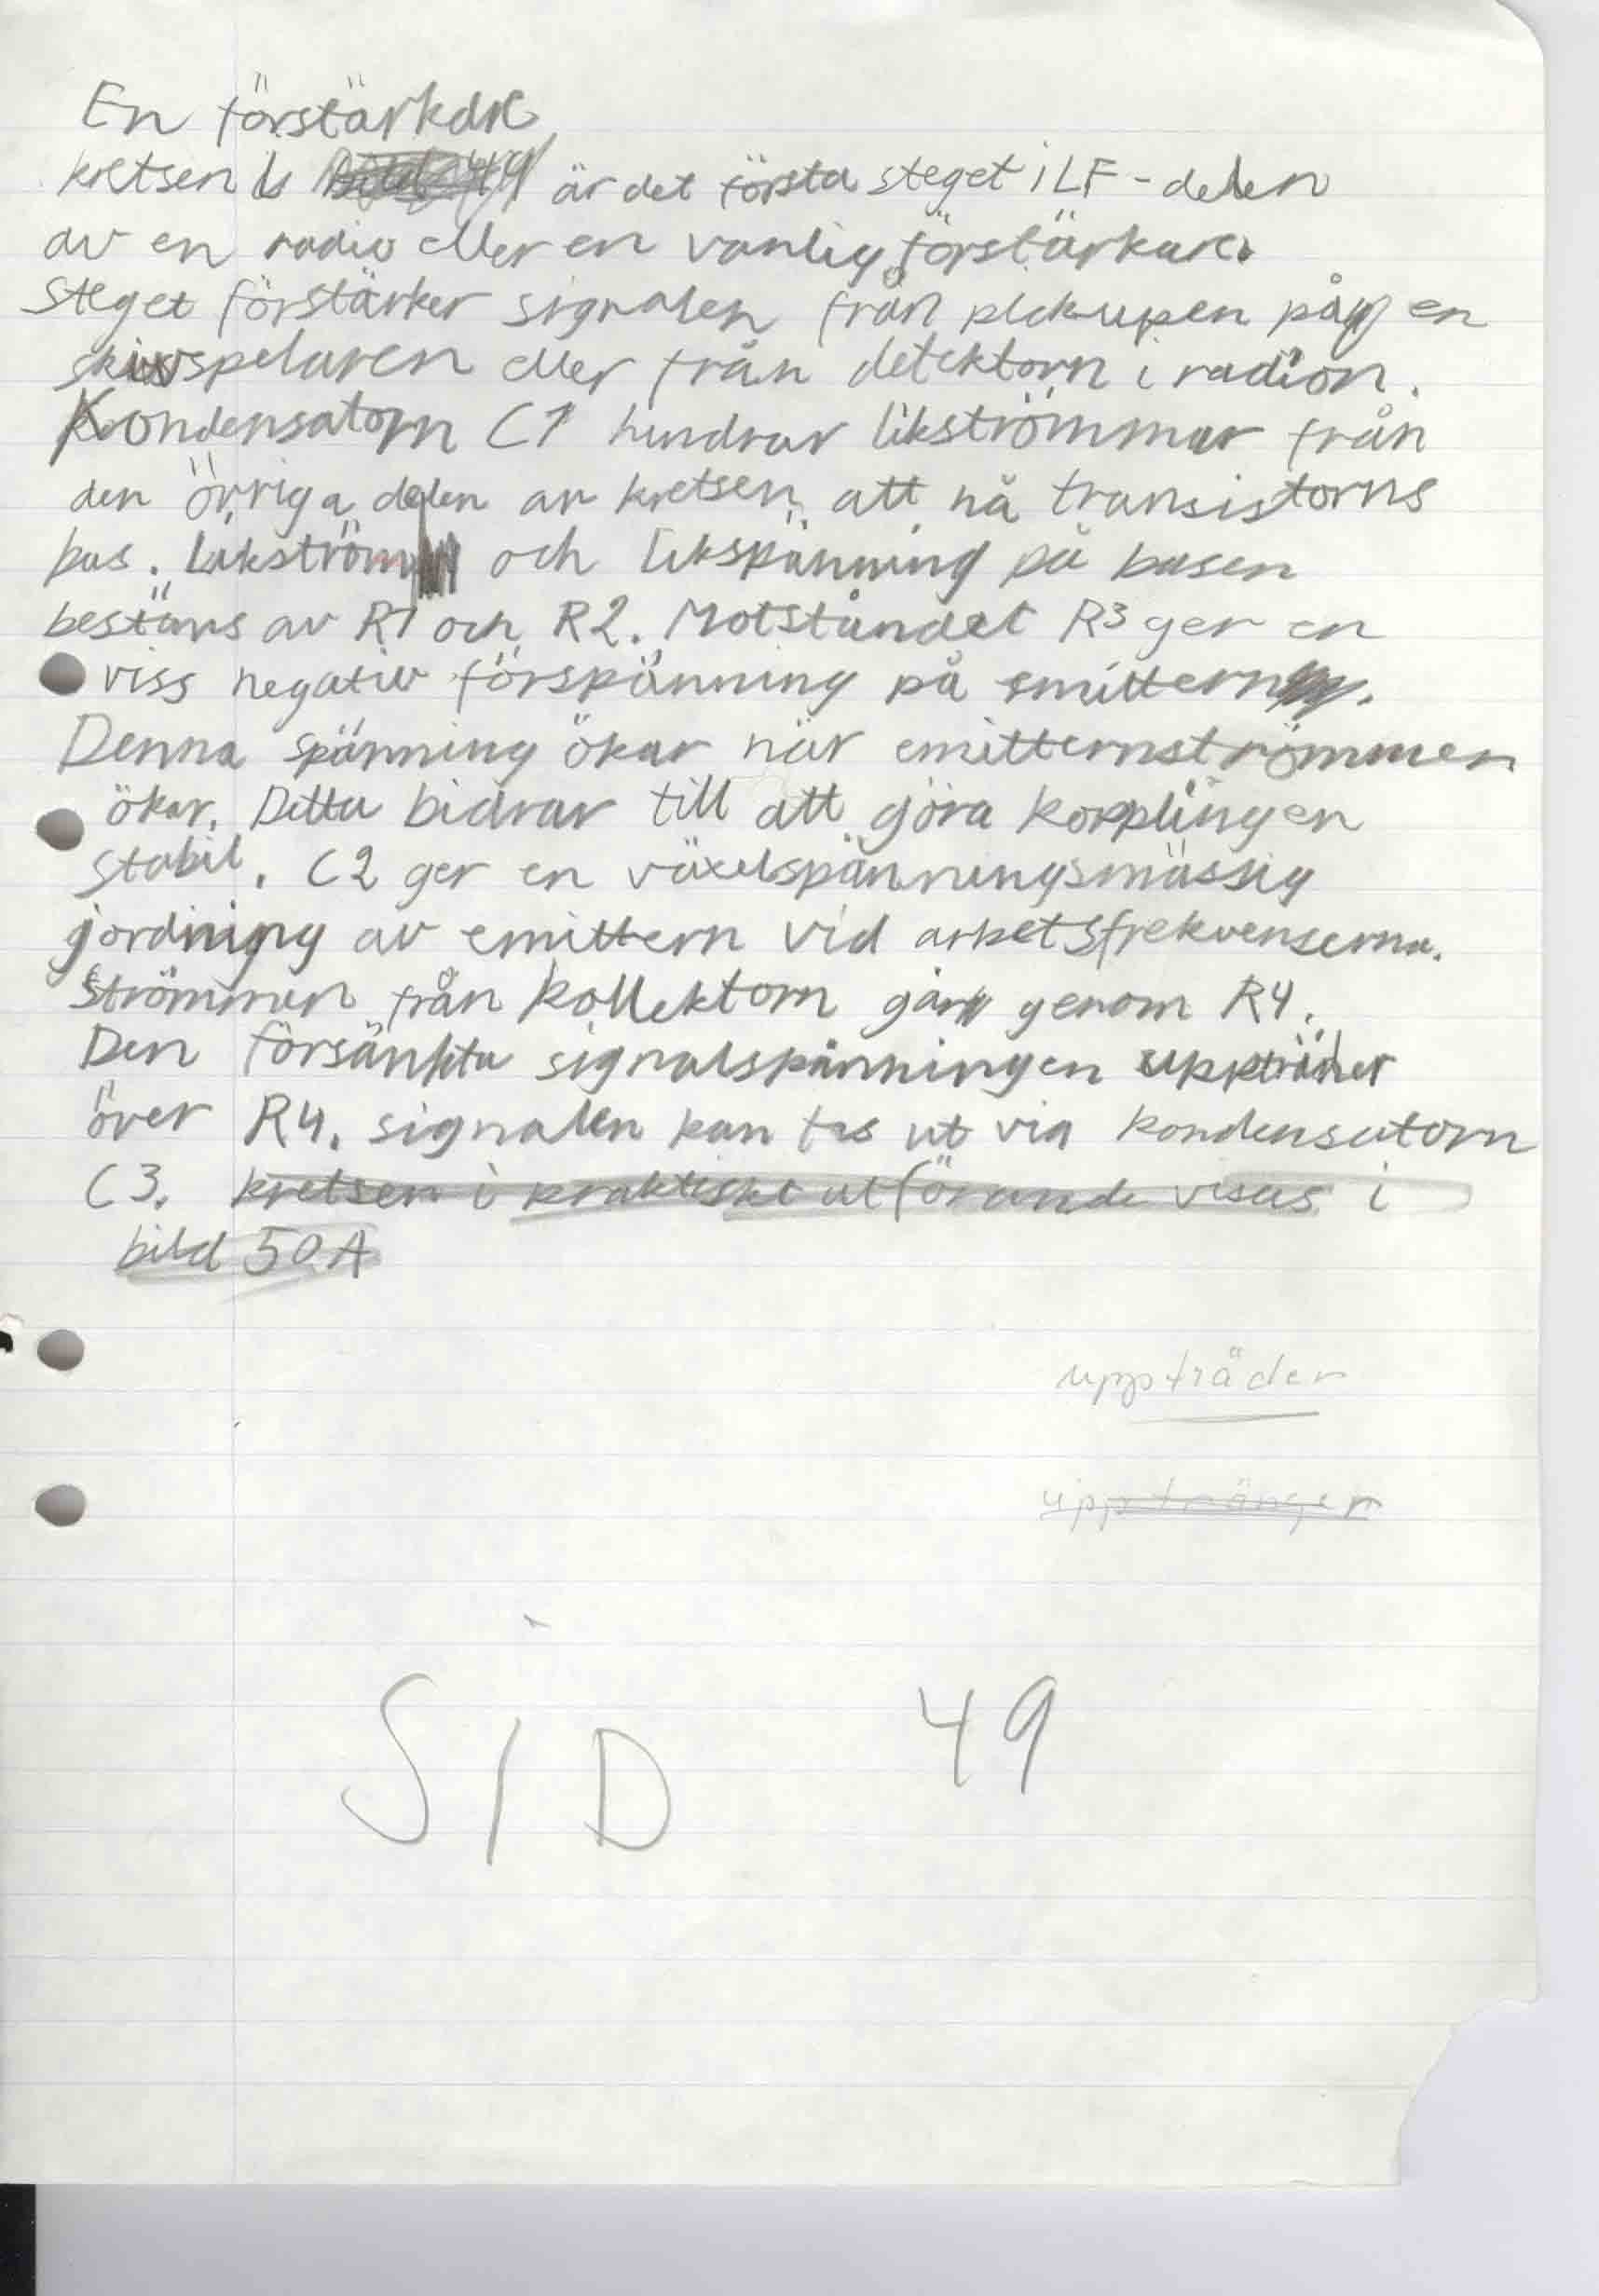 En förstärkare
kretsen är det första steget i LF-delen
av en radio eller en vanlig förstärkare.
steget förstärker signalen från pickupen på en
skivspelaren eller från detektorn i radion.
Kondensatorn C1 hindrar likströmmar från
den övriga delen av kretsen att nå transistorns
bas. Likström och likspänning på basen
bestäms av R1 och R2. Motståndet R3 ger en
viss negativ förspänning på emittern.
Denna spänning ökar när emitternströmmen
ökar. Detta bidrar till att göra kopplingen
stabil. C2 ger en växelspänningsmässig
jordning av emittern vid arbetsfrekvenserna.
strömmen från kollektorn går genom R4.
Den försänkta signalspänningen uppträder
över R4. signalen kan tas ut via kondensatorn
C3. kretsen i praktiskt utförande visas i
bild 50A
uppträder
upptränger
SID 49